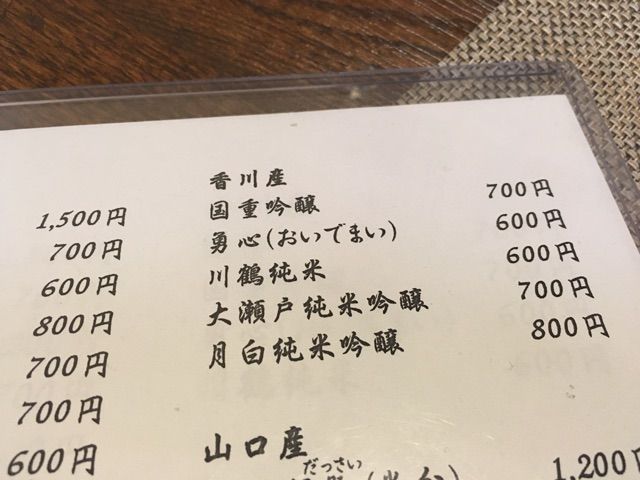 1,500円
700円
600円
800円
700円
700円
600円
香川産
国重吟醸 700円
勇心(おいでまい) 600円
川鶴純米 600円
大瀬戸純米吟醸 700円
月白純米吟醸 800円
山口産
だっさい
1,200円